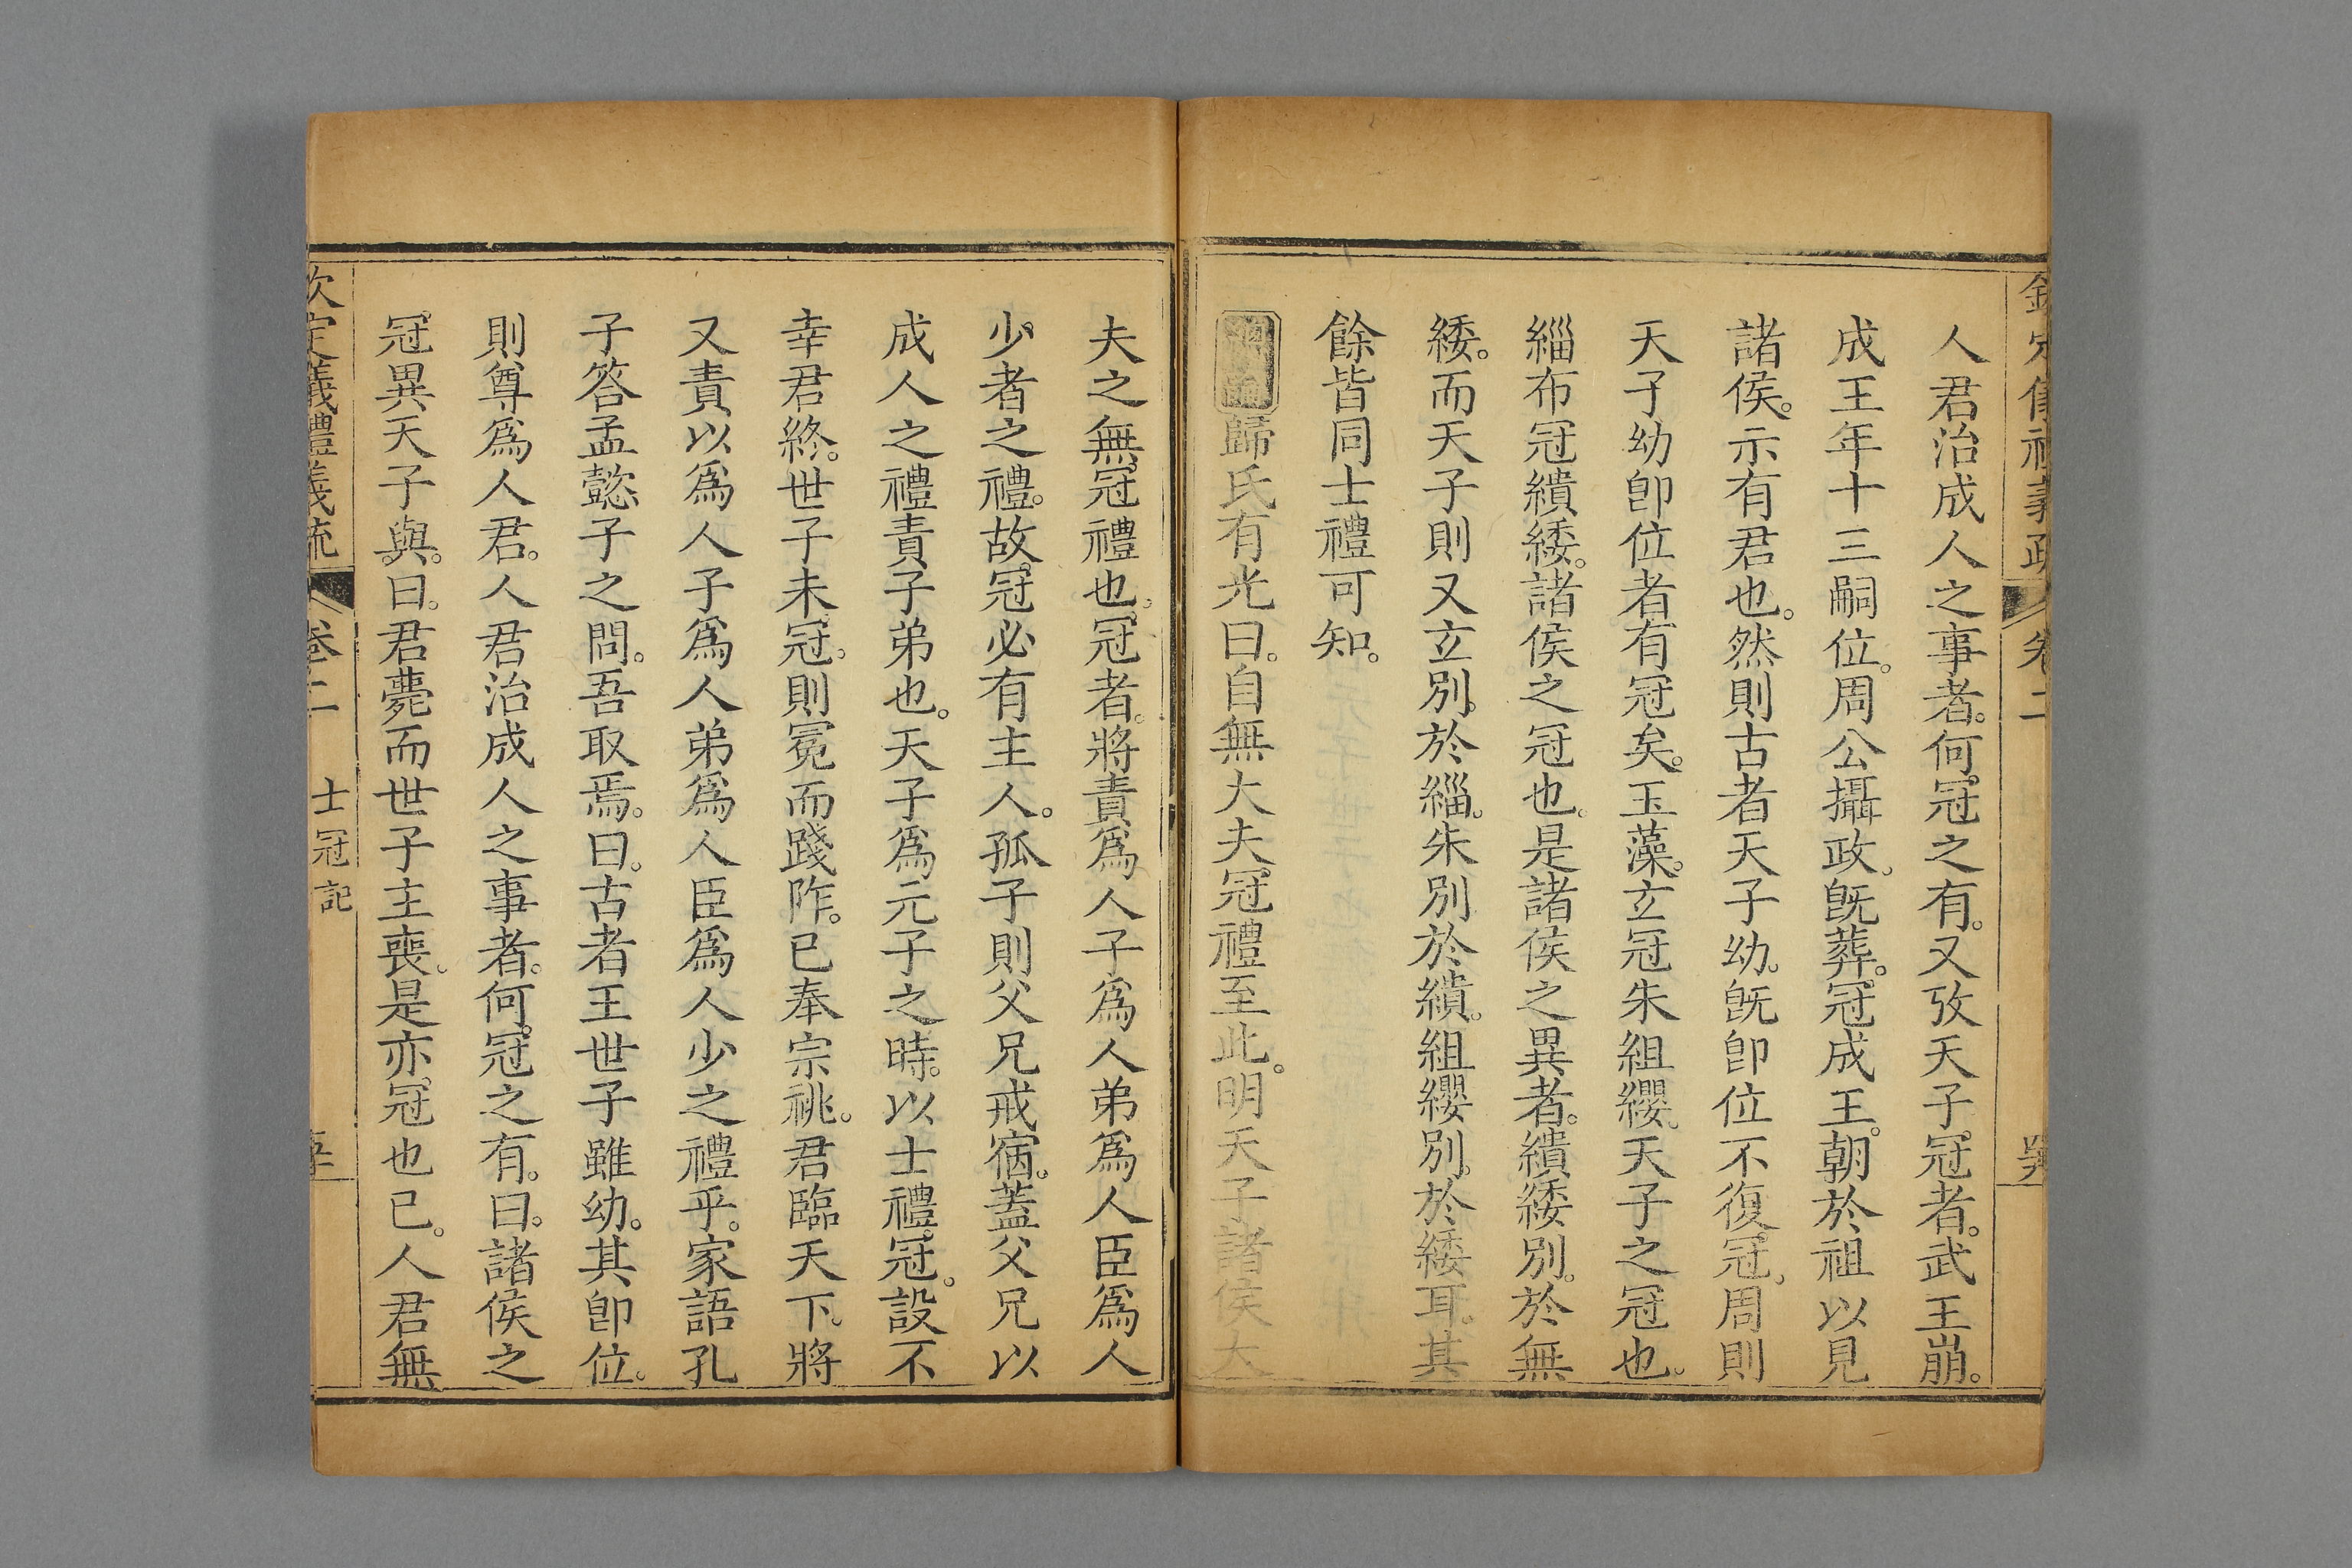 欽定儀禮義疏 卷二
人君治成人之事者。何冠之有。又攷天子冠者。武王崩。
成王年十三嗣位。周公攝政。旣葬。冠成王。朝於祖以見
諸侯。示有君也。然則古者天子幼。旣卽位不復冠。周則
天子幼卽位者有冠矣。玉藻。玄冠朱組纓。天子之冠也。
緇布冠繢緌。諸侯之冠也。是諸侯之異者。繢緌別於無
緌。而天子則又玄別於緇。朱別於繢。組纓別於緌耳。其
餘皆同士禮可知。
歸氏有光曰。自無大夫冠禮至此。明天子諸侯大
夫之無冠禮也。冠者。將責爲人子爲人弟爲人臣爲人
少者之禮。故冠必有主人。孤子則父兄戒宿。蓋父兄以
成人之禮責子弟也。天子爲元子之時。以士禮冠。設不
幸君終。世子未冠。則冕而踐阼。已奉宗祧。君臨天下。將
又責以爲人子爲人弟爲人臣爲人少之禮乎。家語孔
子答孟懿子之問。吾取焉。曰。古者王世子雖幼。其卽位。
則尊爲人君。人君治成人之事者。何冠之有。曰。諸侯之
冠異天子與。曰。君薨而世子主喪。是亦冠也已。人君無
欽定儀禮義疏 卷二 士冠記